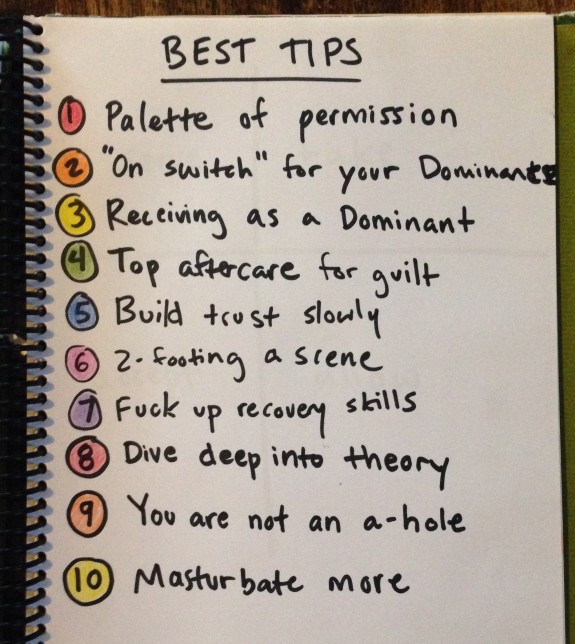 BEST TIPS
1 Palette of permission
2 "On switch" for your Dominants
3 Receiving as a Dominant
4 Top aftercare for guilt
5 Build trust slowly
6 2-footing a scene
7 Fuck up recovery skills
8 Dive deep into theory
9 You are not an a-hole
10 Masturbate more